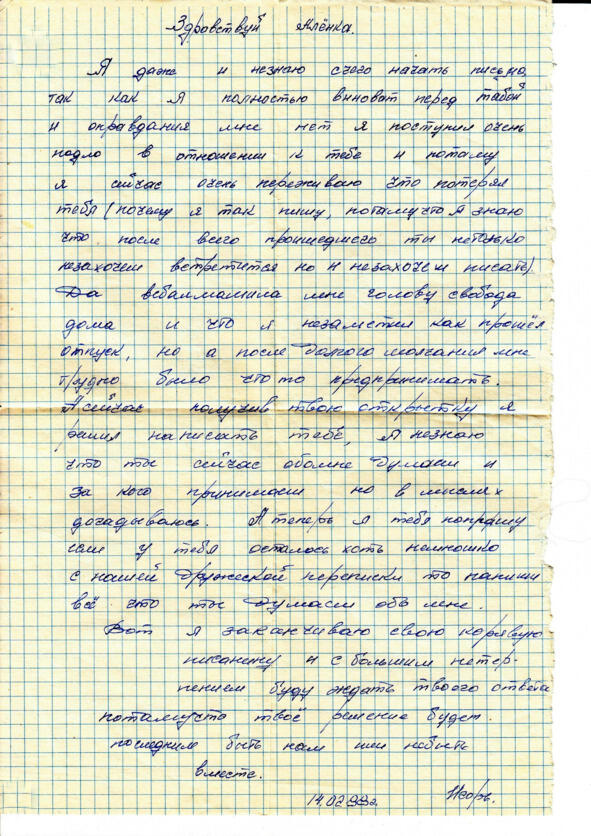 Здравствуй Алёнка.
Я даже и незнаю счего начать письмо,
так как я полностью виноват перед табой
и оправдания мне нет я поступил очень
подло в отношении к тебе и потаму
я сейчас очень переживаю что потерял
тебя (почему я так пишу, потамучто я знаю
что после всего проишедшего ты нетолько
незахочеш встретится но и незахочеш писать).
Да взбаламашила мне голову свобода
дома и что я незаметил как прошёл
отпуск, но а после долгого молчания мне
трудно было что то предпринимать.
А сейчас получив твою открытку я
решил написать тебе, я незнаю
что ты сейчас обомне думаеш и
за кого принимаеш но в мыслях
догадываюсь. А теперь я тебя попрашу
если у тебя осталось хоть немношко
с нашей дружеской переписки то напиши
всё что ты думаеш обо мне.
Вот я заканчиваю свою корявую
писанину и с большим нетер-
пением буду ждать твоего ответа
потамушто твоё решение будет
последним быть нам или небыть
вместе.
14.02. Игорь.